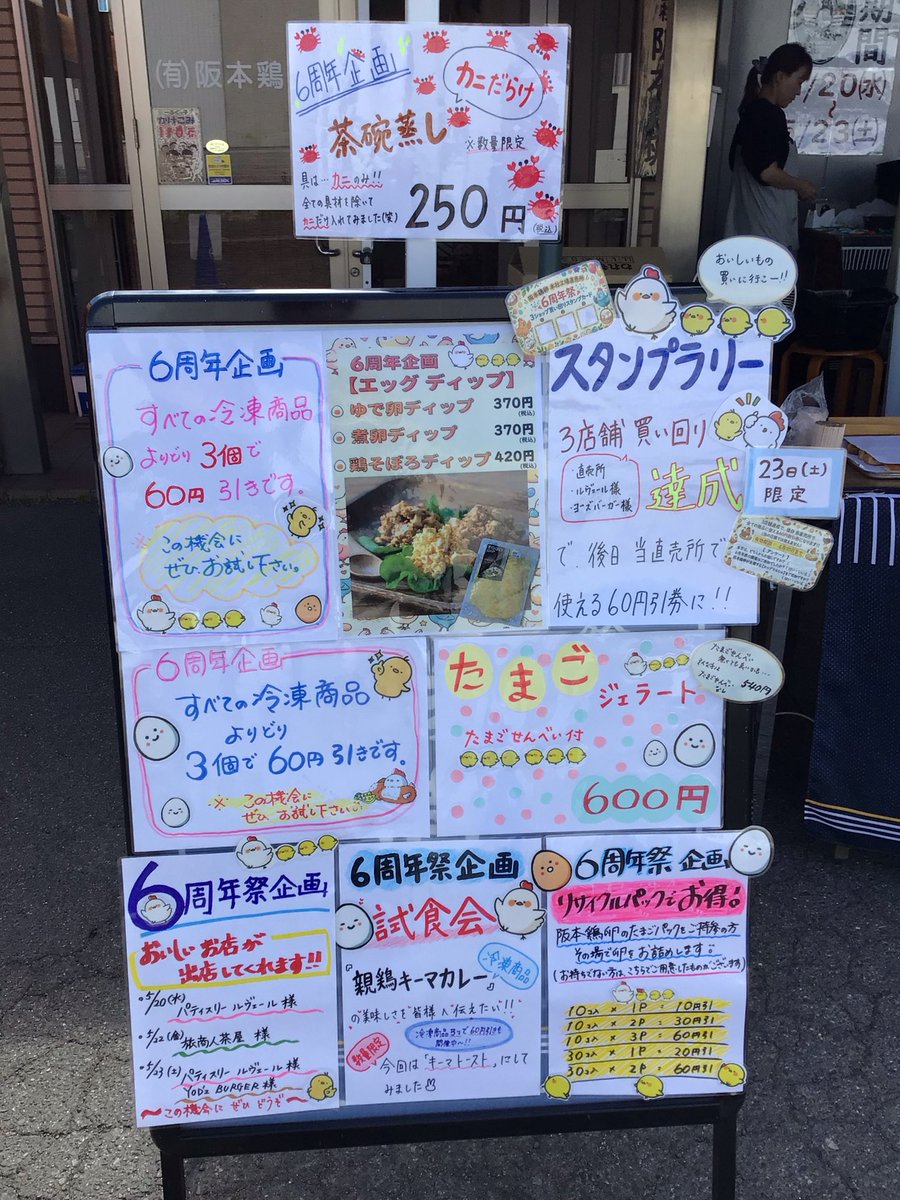 (有)阪本鶏
期間
/20(水)
～
5/23(土)
6周年企画
カニだらけ
茶碗蒸し
※数量限定
具は…カニのみ!!
全ての具材を除いて
カニだけ入れてみました(笑)
250円
(税込)
おいしいもの
買いに行こー!!
6周年祭
6周年企画
すべての冷凍商品
よりどり3個で
60円引きです。
※この機会に
ぜひお試し下さい。
6周年企画
【エッグディップ】
ゆで卵ディップ 370円
(税込)
煮卵ディップ 370円
(税込)
鶏そぼろディップ 420円
(税込)
スタンプラリー
3店舗買い回り
・直売所
・ルヴェール様
・ヨーズバーガー様
達成
で、後日当直売所で
使える60円引券に!!
23日(土)
限定
6周年企画
すべての冷凍商品
よりどり
3個で60円引きです。
※この機会に
ぜひお試し下さい
たまご
ジェラート
たまごせんべい付
600円
たまごせんべい
540円
6周年祭企画
おいしいお店が
出店してくれます!!
・5/20(水)
パティスリー ルヴェール様
・5/22(金)
旅商人茶屋様
・5/23(土)
パティスリー ルヴェール様
YOD'z BURGER様
～この機会にぜひどうぞ～
6周年祭企画
試食会
『親鶏キーマカレー』
冷凍商品
の美味しさを皆様へ伝えたい!!
冷凍商品3コで60円引きも
開催中〜!!
数量限定
今回は「キーマトースト」にして
みました
6周年祭企画
リサイクルパックでお得!
阪本鶏卵のたまごパックをご持参の方
その場で卵をお詰めします。
(お持ちでない方はこちらでご用意したものがございます)
10コ入 × 1P = 10円引
10コ入 × 2P = 30円引
10コ入 × 3P = 60円引
30コ入 × 1P = 20円引
30コ入 × 2P = 60円引